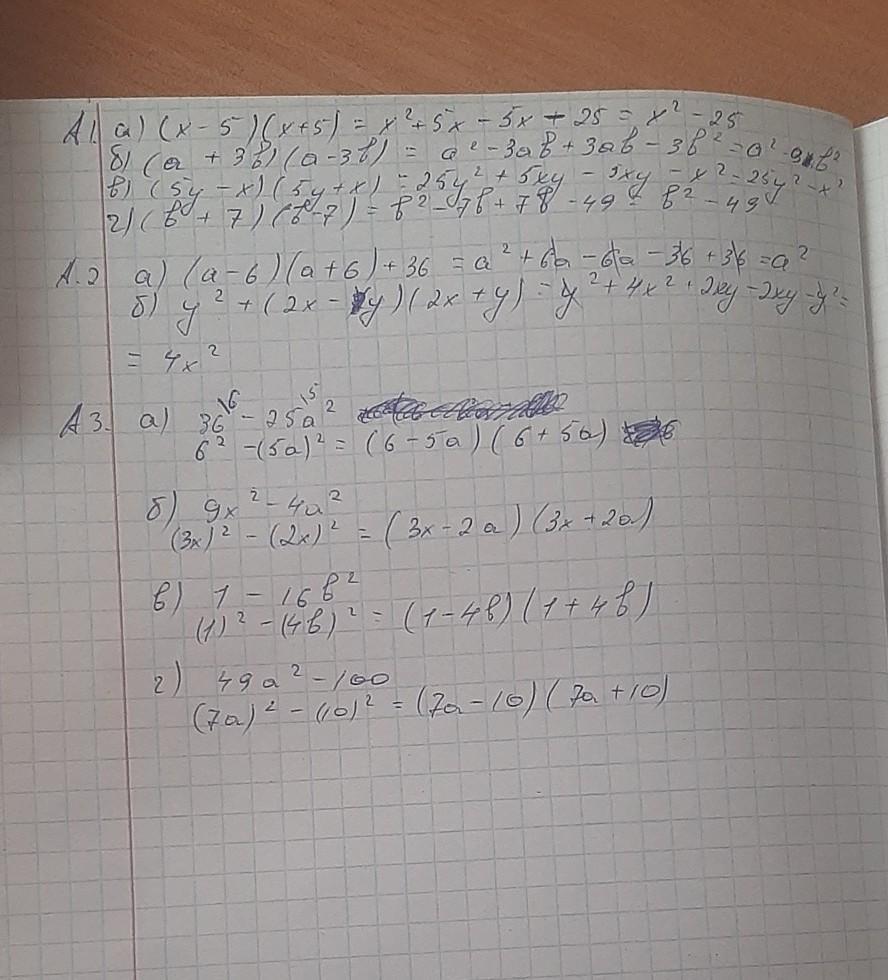 А1. а) (x - 5)(x+5) = x²+5x - 5x + 25 = x² - 25
б) (a + 3b)(a - 3b) = a² - 3ab + 3ab - 3b² = a² - 9b²
в) (5y - x)(5y + x) = 25y² + 5xy - 5xy - x² = 25y² - x²
г) (b + 7)(b - 7) = b² - 7b + 7b - 49 = b² - 49
А.2 а) (a - 6)(a + 6) + 36 = a² + 6a - 6a - 36 + 36 = a²
б) y² + (2x - y)(2x + y) = y² + 4x² + 2xy - 2xy - y² =
= 4x²
А3. а) 36\⁶ - 25a²\⁵
6² - (5a)² = (6 - 5a)(6 + 5a)
б) 9x² - 4a²
(3x)² - (2x)² = (3x - 2a)(3x + 2a)
в) 1 - 16b²
(1)² - (4b)² = (1 - 4b)(1 + 4b)
г) 49a² - 100
(7a)² - (10)² = (7a - 10)(7a + 10)